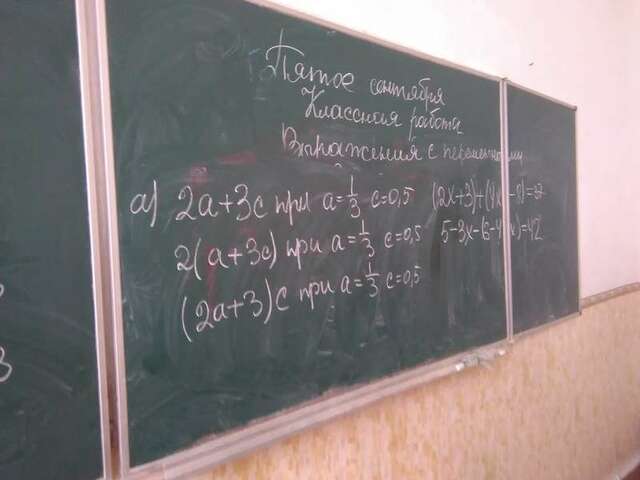 Пятое сентября
Классная работа
Выражения с переменными
а) 2a+3c при a=1/3 c=0,5
2(a+3c) при a=1/3 c=0,5
(2a+3)c при a=1/3 c=0,5
5-3x-(6-4x)=42
3